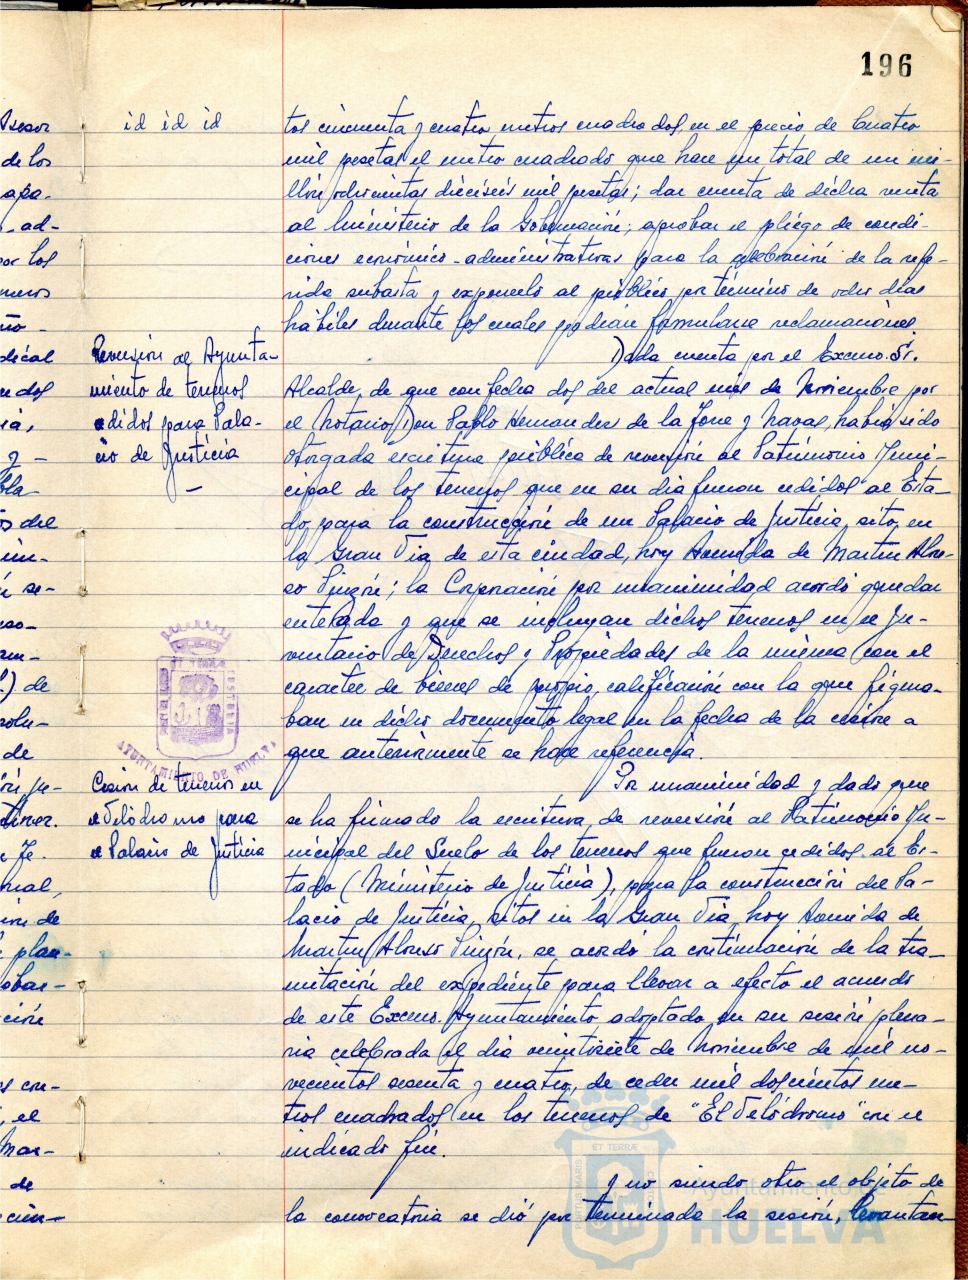 196
id id id
tos cincuenta y cuatro metros cuadrados, en el precio de Cuatro
mil pesetas el metro cuadrado que hace un total de un mi-
llón ochocientas dieciseis mil pesetas; dar cuenta de dicha venta
al Ministerio de la Gobernación; aprobar el pliego de condi-
ciones económico-administrativas para la celebración de la refe-
rida subasta y exponerlo al público por término de ocho días
hábiles durante los cuales podrán formularse reclamaciones.
Reversión al Ayunta-
miento de terrenos
cedidos para Pala-
cio de Justicia
Dada cuenta por el Excmo. Sr.
Alcalde, de que con fecha dos del actual mes de Noviembre por
el Notario Don Pablo Hernandez de la Torre y Navas, había sido
otorgada escritura pública de reversión al Patrimonio Muni-
cipal de los terrenos que en su dia fueron cedidos al Esta-
do, para la construcción de un Palacio de Justicia, sito en
la Gran Via de esta ciudad, hoy Avenida de Martin Alon-
so Pinzón; la Corporación por unanimidad acordó quedar
enterada y que se incluyan dichos terrenos en el In-
ventario de Derechos y Propiedades de la misma con el
caracter de bienes de propio, calificación con la que figura-
ban en dicho documento legal en la fecha de la cesión a
que anteriormente se hace referencia.
ET TERRÆ
AYUNTAMIENTO DE HUELVA
Cesión de terrenos en
el Velódromo para
el Palacio de Justicia
Por unanimidad y dado que
se ha firmado la escritura de reversión al Patrimonio Mu-
nicipal del Suelo de los terrenos que fueron cedidos al Es-
tado (Ministerio de Justicia), para la construcción del Pa-
lacio de Justicia, sitos en la Gran Via, hoy Avenida de
Martin Alonso Pinzón, se acordó la continuación de la tra-
mitación del expediente para llevar a efecto el acuerdo
de este Excmo. Ayuntamiento adoptado en su sesión plena-
ria celebrada el dia veintisiete de Noviembre de mil no-
vecientos sesenta y cuatro, de ceder mil doscientos me-
tros cuadrados en los terrenos de "El Velódromo" con el
indicado fin.
Y no siendo otro el objeto de
la convocatoria se dió por terminada la sesión, levantan-
ET TERRÆ
Ayuntamiento de
HUELVA